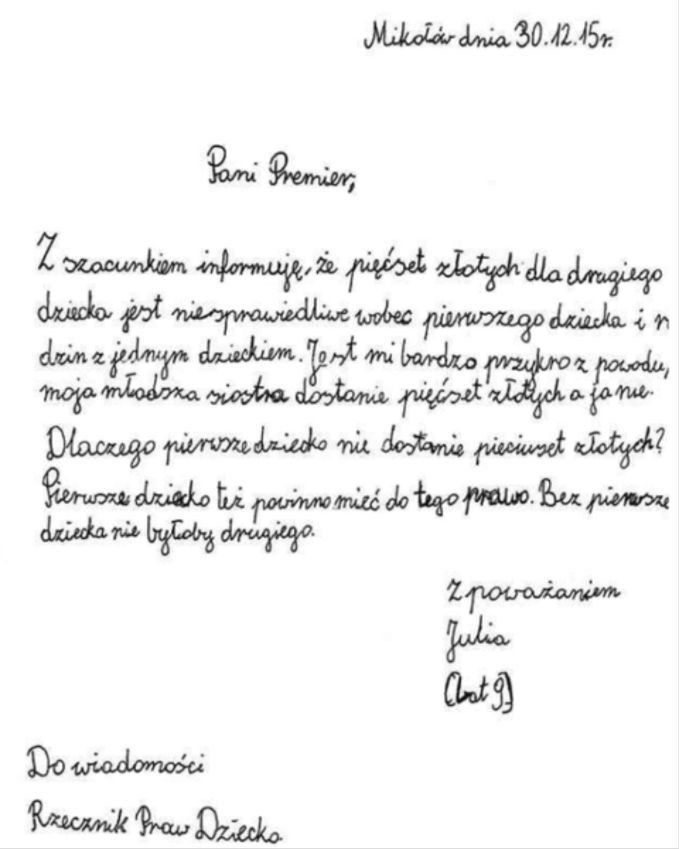 Mikołów dnia 30.12.15r.
Pani Premier,
Z szacunkiem informuję, że pięćset złotych dla drugiego
dziecka jest niesprawiedliwe wobec pierwszego dziecka i r
dzin z jednym dzieckiem. Jest mi bardzo przykro z powodu,
moja młodsza siostra dostanie pięćset złotych a ja nie.
Dlaczego pierwsze dziecko nie dostanie pieciuset złotych?
Pierwsze dziecko też powinno mieć do tego prawo. Bez pierwsze
dziecka nie byłoby drugiego.
Z poważaniem
Julia
(lat 9)
Do wiadomości
Rzecznik Praw Dziecka